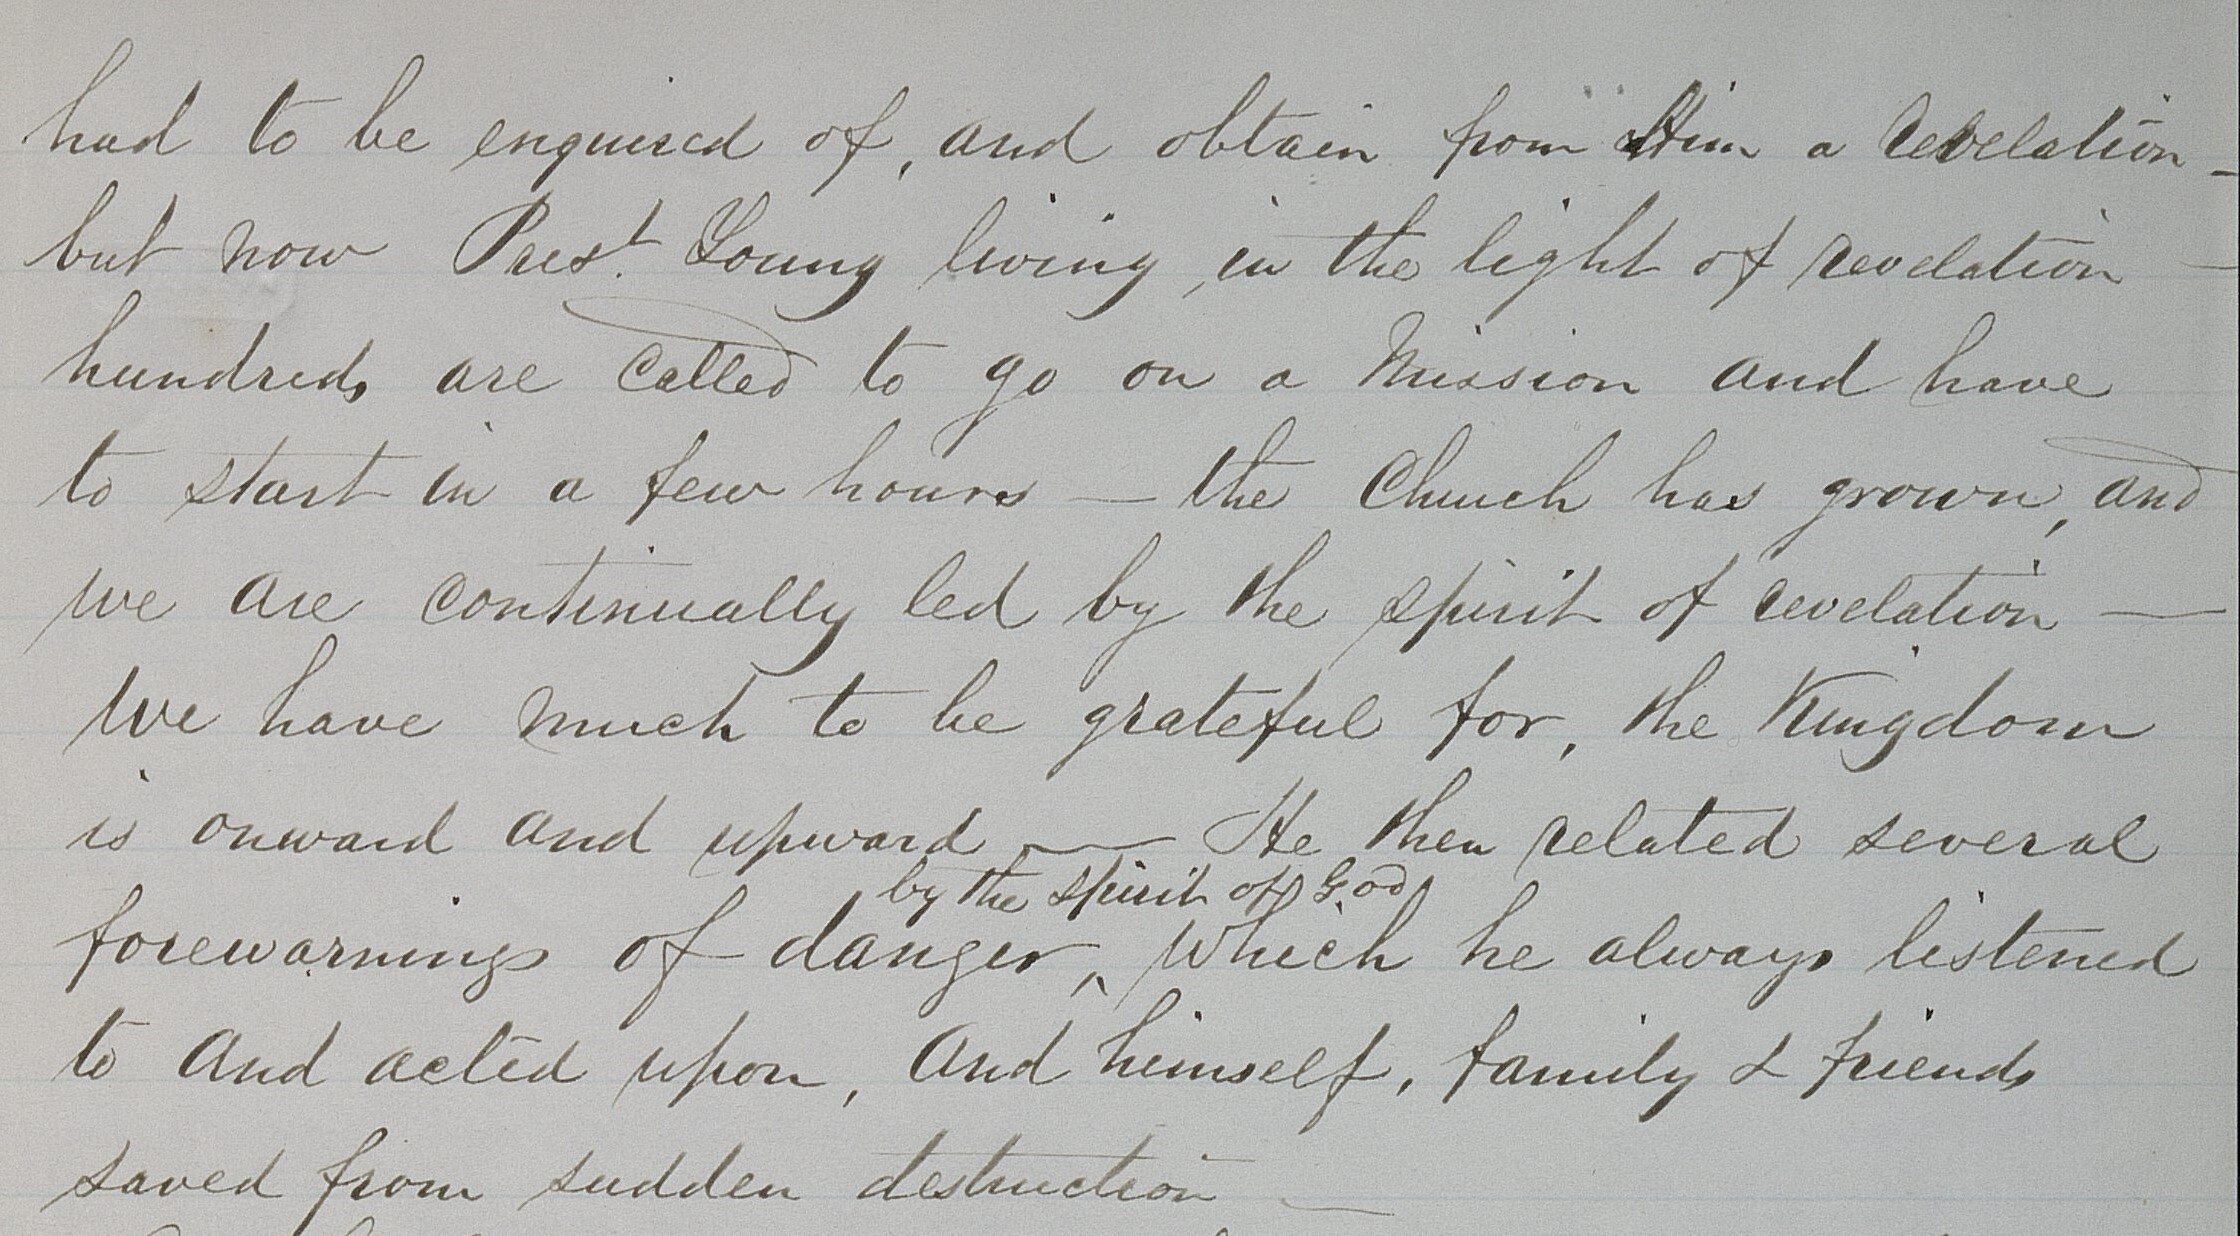 had to be enquired of, and obtain from Him a revelation -
but now Prest. Young living, in the light of revelation -
hundreds are called to go on a Mission and have
to start in a few hours — the Church has grown, and
we are continually led by the spirit of revelation —
We have much to be grateful for, the Kingdom
is onward and upward — He then related several
by the spirit of God
forewarnings of danger,^ which he always listened
to and acted upon, and himself, family & friends
saved from sudden destruction —